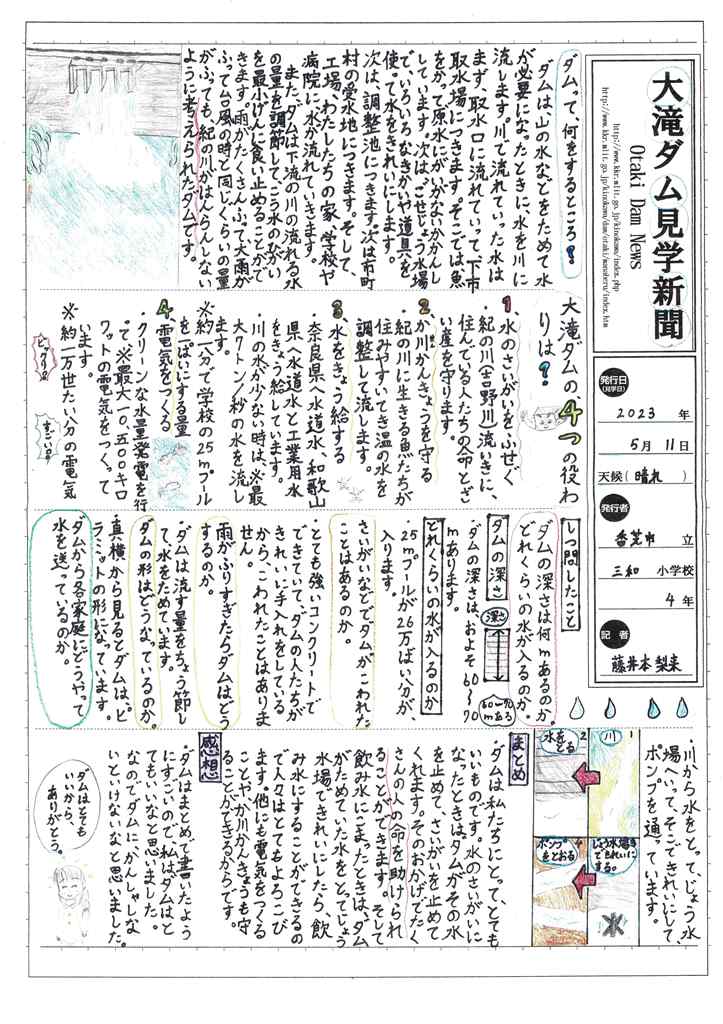 大滝ダム見学新聞
Otaki Dam News
http://www.kkr.mlit.go.jp/kinokawa/index.php
http://www.kkr.mlit.go.jp/kinokawa/dam/otaki/manaberu/index.htm
発行日
(見学日)
2023 年
5月 11日
天候( 晴れ )
発行者
香芝市 立
三和 小学校
4 年
記者
藤井本梨来
ダムって、何をするところ?
ダムは山の水などをためて水
が必要になったときに水を川に
流します。川で流れていった水は
まず、取水口に流れていって、下市
取水場につきます。そこでは魚
をかって原水にがいがないかかんし
しています。次は、ごせじょう水場
で、いろいろなきかいや道具を
使って水をきれいにします。
次は、調整池につきます。次は市町
村の受水地につきます。そして、
工場、わたしたちの家、学校や
病院に、水が流れていきます。
また、ダムは下流の川の流れる水
の量を調節して、こう水のひがい
を最小げんに食い止めることがで
きます。雨がたくさんふって大雨が
ふって台風の時と同じくらいの量
がふっても、紀の川がはんらんしない
ように考えられたダムです。
大滝ダムの、4つの役わ
りは?
1、水のさいがいをふせぐ
・紀の川(吉野川)流いきに、
住んでいる人たちの命とざ
い産を守ります。
2、か川かんきょうを守る
・紀の川に生きる魚たちが
住みやすいてき温の水を
調整して流します。
3、水をきょう給する
・奈良県へ水道水、和歌山
県へ水道水と工業用水
をきょう給しています。
・川の水が少ない時は、※最
大7トン/秒の水を流し
ます。
※約一分で学校の25mプール
を一ぱいにする量
4、電気をつくる
・クリーンな水量発電を行
って、※最大一〇、五〇〇キロ
ワットの電気をつくって
います。
※約一万世たい分の電気
ビックリ!
すごい。
しつ問したこと
ダムの深さは何mあるのか。
どれくらいの水が入るのか。
ダムの深さ
深さ
60〜70
mある
ダムの深さは、およそ60〜70
mあります。
どれくらいの水が入るのか
25mプールが26万ぱい分が、
入ります。
さいがいなどでダムがこわれた
ことはあるのか。
・とても強いコンクリートで
できていて、ダムの人たちが
きれいに手入れをしている
から、こわれたことはありま
せん。
雨がふりすぎたらダムはどう
するのか。
・ダムは流す量をちょう節し
て水をためています。
ダムの形はどうなっているのか。
真横から見るとダムは、ピ
ラミットの形になっています。
ダムから各家庭にどうやって
水を送っているのか。
・川から水をとって、じょう水
場へいって、そこできれいにして
ポンプを通っています。
1
川
2
水をとる
じょう水場
できれいに
する。
4
ポンプ
をとおる
まとめ
・ダムは私たちにとって、とても
いいものです。水のさいがいに
なったときはダムがその水
を止めて、さいがいを止めて
くれます。そのおかげでたく
さんの人の命を助けられ
ることができます。そして
飲み水にこまったときは、ダム
がためていた水をとってじょう
水場できれいにしたら、飲
み水にすることができるの
で人々はとてもよろこび
ます。他にも電気をつくる
ことやか川かんきょうも守
ることができるからです。
感想
・ダムはまとめで書いたよう
にすごいので、私はダムはと
てもいいなと思いました。
なのでダムに、かんしゃしな
いといけないなと思いました。
ダムはとても
いいから、
ありがとう。